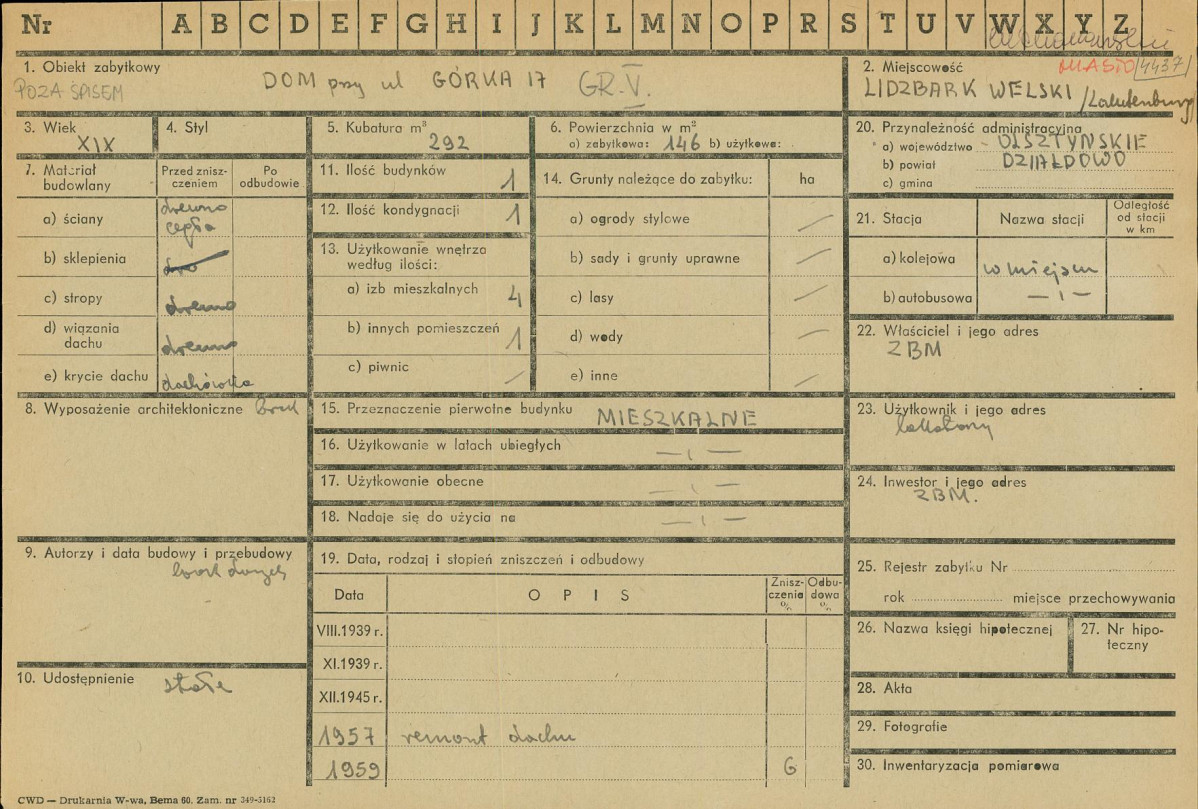 Nr A B C D E F G H I J K L M N O P R S T U V W X Y Z
1. Obiekt zabytkowy
POZA SPISEM
DOM przy ul GÓRKA 17 GR.V.
2. Miejscowość MIASTO /4437/
LIDZBARK WELSKI /Lautenburg/
3. Wiek
XIX
4. Styl
5. Kubatura m³
292
6. Powierzchnia w m²
a) zabytkowa: 146 b) użytkowa:
7. Materiał budowlany
Przed zniszczeniem
Po odbudowie
a) ściany drewno cegła
b) sklepienia
c) stropy drewno
d) wiązania dachu drewno
e) krycie dachu dachówka
8. Wyposażenie architektoniczne brak
9. Autorzy i data budowy i przebudowy
brak danych
10. Udostępnienie stałe
11. Ilość budynków 1
12. Ilość kondygnacji 1
13. Użytkowanie wnętrza według ilości:
a) izb mieszkalnych 4
b) innych pomieszczeń 1
c) piwnic /
14. Grunty należące do zabytku: ha
a) ogrody stylowe /
b) sady i grunty uprawne /
c) lasy /
d) wody /
e) inne /
15. Przeznaczenie pierwotne budynku MIESZKALNE
16. Użytkowanie w latach ubiegłych — „ —
17. Użytkowanie obecne — „ —
18. Nadaje się do użycia na — „ —
19. Data, rodzaj i stopień zniszczeń i odbudowy
Data OPIS Zniszczenia % Odbudowa %
VIII.1939 r.
XI.1939 r.
XII.1945 r.
1957 remont dachu
1959 6
20. Przynależność administracyjna
a) województwo - OLSZTYŃSKIE
b) powiat DZIAŁDOWO
c) gmina
21. Stacja Nazwa stacji Odległość od stacji w km
a) kolejowa w miejscu
b) autobusowa — „ —
22. Właściciel i jego adres
ZBM
23. Użytkownik i jego adres
lokatorzy
24. Inwestor i jego adres
ZBM.
25. Rejestr zabytku Nr
rok miejsce przechowywania
26. Nazwa księgi hipotecznej
27. Nr hipoteczny
28. Akta
29. Fotografie
30. Inwentaryzacja pomiarowa
CWD — Drukarnia W-wa, Bema 60. Zam. nr 349-5162